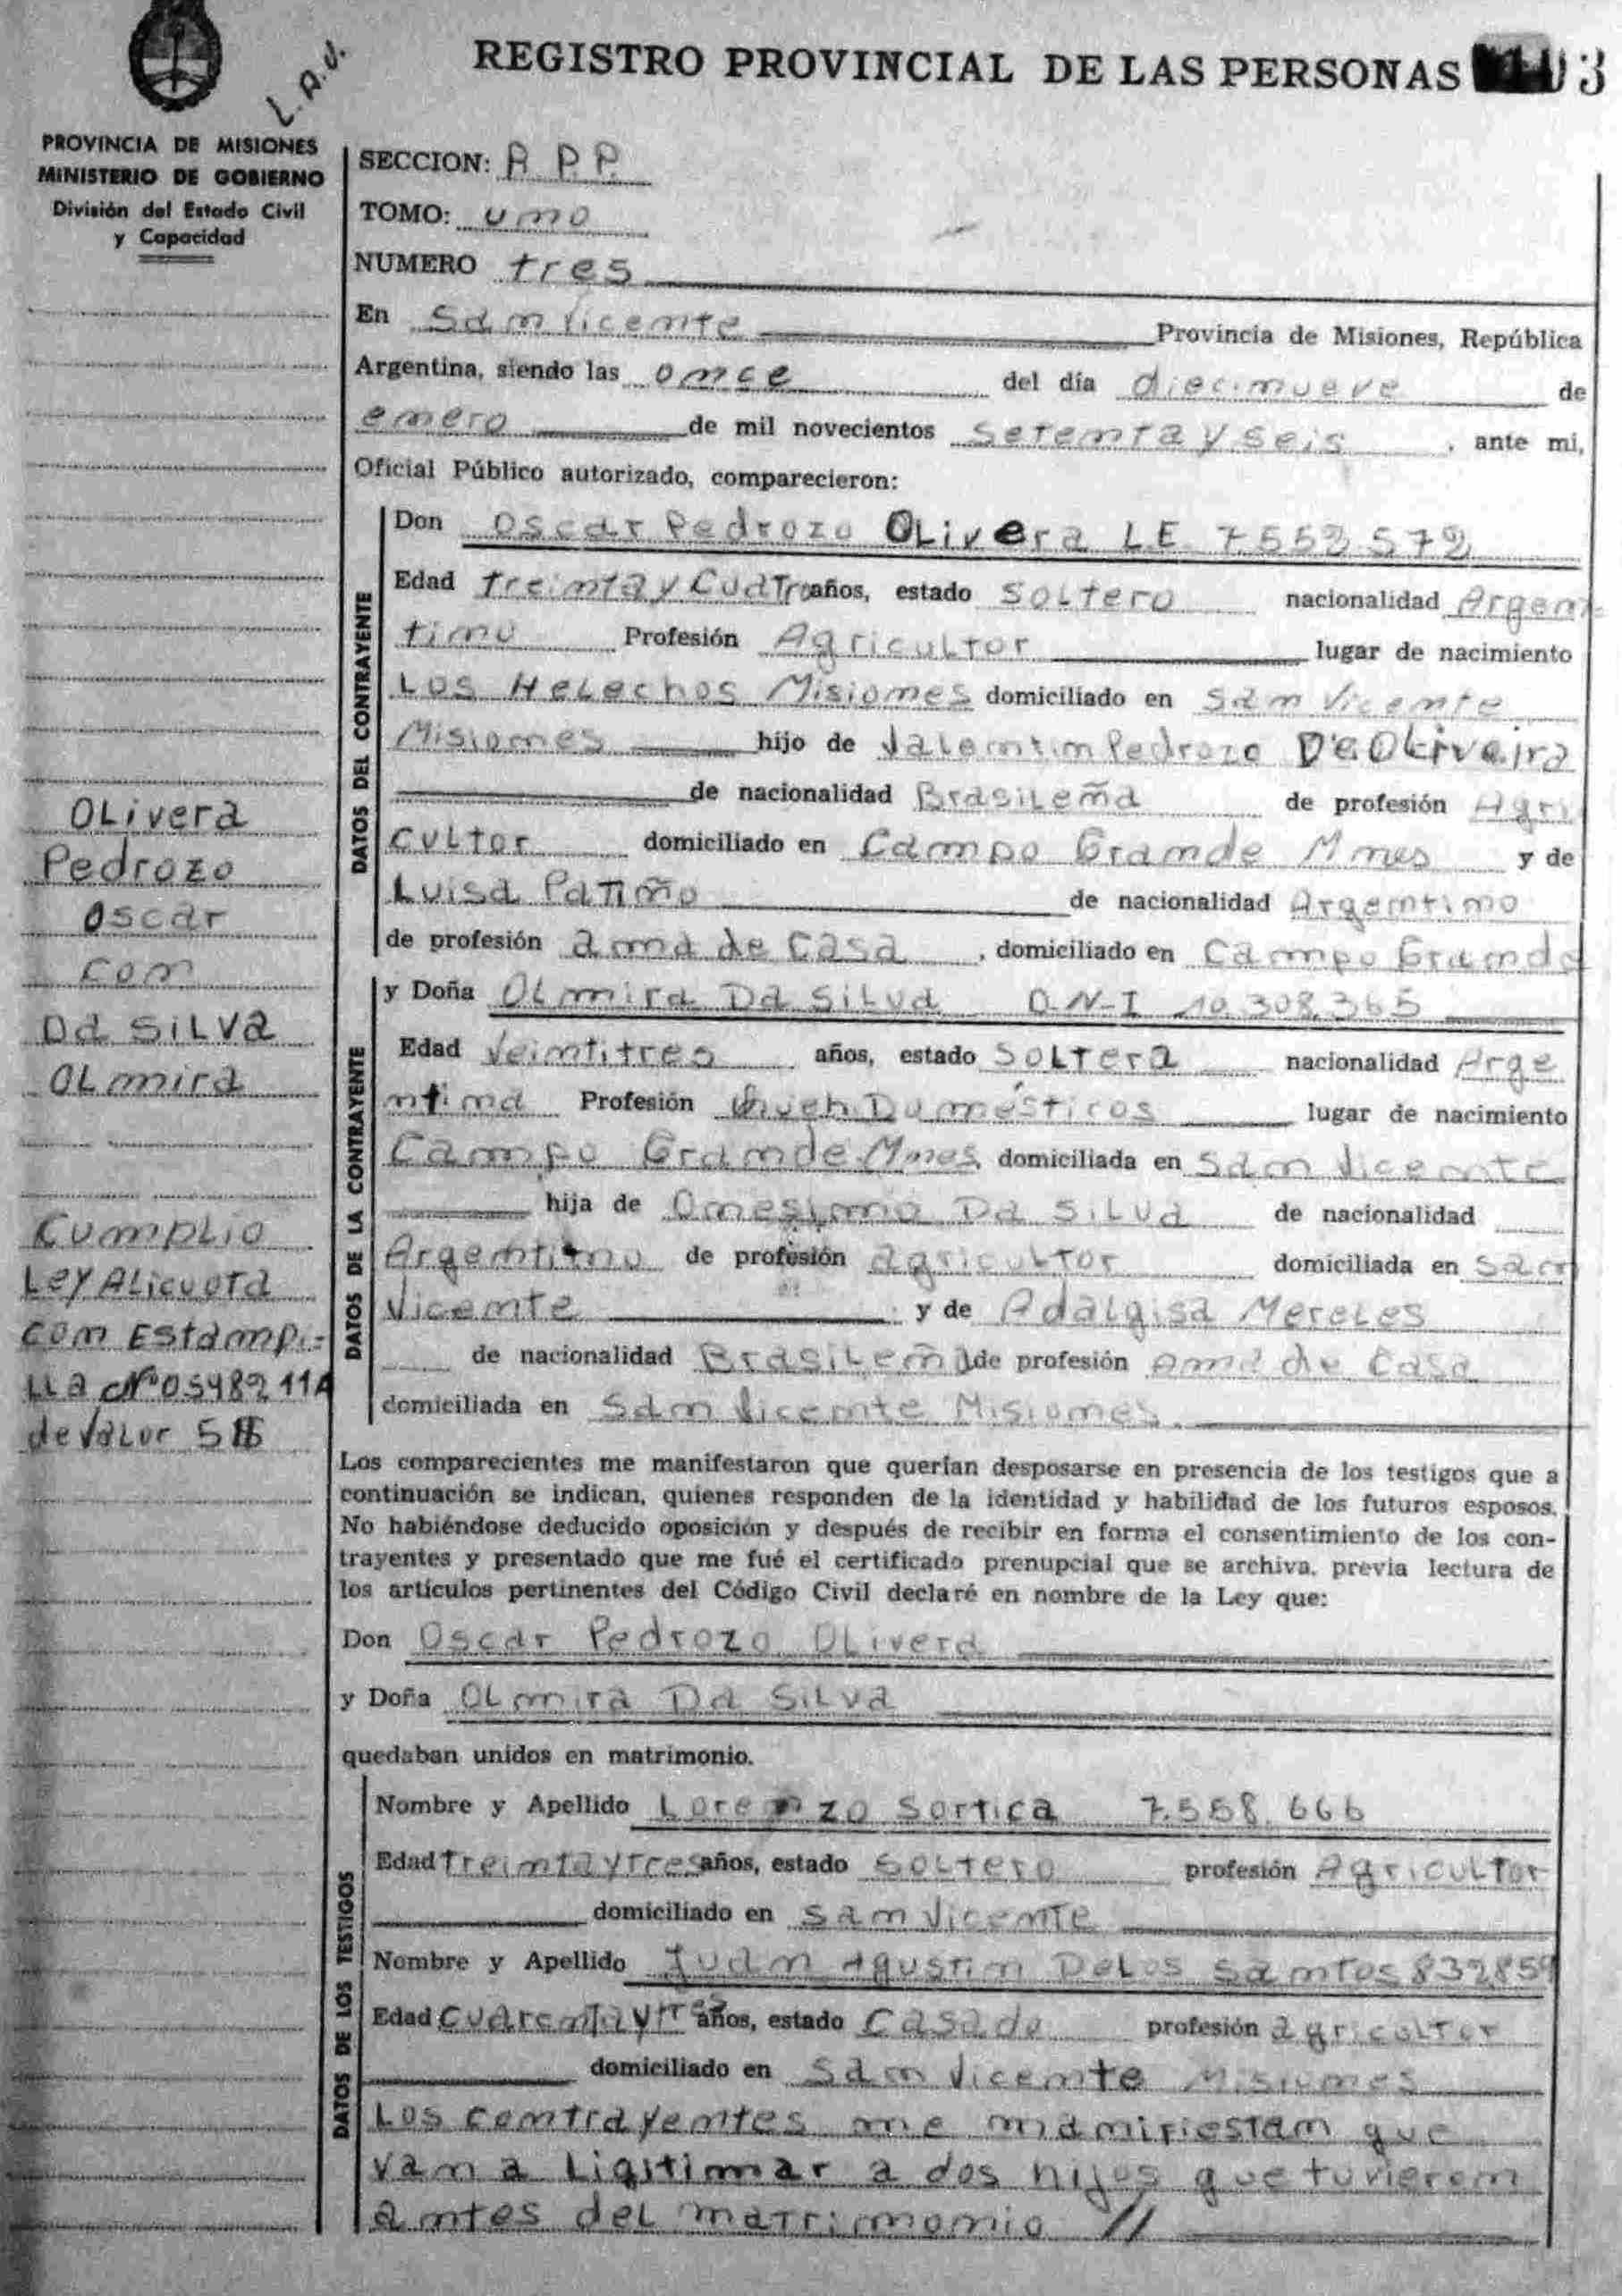 REGISTRO PROVINCIAL DE LAS PERSONAS
L.A.V.
PROVINCIA DE MISIONES
MINISTERIO DE GOBIERNO
División del Estado Civil
y Capacidad
SECCION: A P.P.
TOMO: uno
NUMERO tres
En San Vicente Provincia de Misiones, República
Argentina, siendo las once del día diecinueve de
enero de mil novecientos setenta y seis, ante mi,
Oficial Público autorizado, comparecieron:
DATOS DEL CONTRAYENTE
Don Oscar Pedrozo OLivera L E 7552572
Edad treinta y Cuatro años, estado SoLtero nacionalidad Argen
tino Profesión Agricultor lugar de nacimiento
Los Helechos Misiones domiciliado en San Vicente
Misiones hijo de Valentin Pedrozo De OLiveira
de nacionalidad BrasiLeña de profesión Agri
cuLtor domiciliado en Campo Grande Mnes y de
Luisa Patiño de nacionalidad Argentino
de profesión ama de Casa, domiciliado en Campo Grande
DATOS DE LA CONTRAYENTE
y Doña OLmira Da SiLva D.N-I 10.308.365
Edad Veintitres años, estado SoLtera nacionalidad Arge
ntina Profesión Queh Domésticos lugar de nacimiento
Campo Grande Mnes, domiciliada en San Vicente
hija de Onesimo Da SiLva de nacionalidad
Argentino de profesión agricuLtor domiciliada en San
Vicente y de Adalgisa MereLes
de nacionalidad BrasiLeña de profesión Ama de Casa
domiciliada en San Vicente Misiones.
OLivera
Pedrozo
Oscar
con
Da SiLVa
OLmira
CumpLio
Ley ALicuota
con Estampi-
LLa Nº 0548211A
de vaLor 5 $
Los comparecientes me manifestaron que querían desposarse en presencia de los testigos que a
continuación se indican, quienes responden de la identidad y habilidad de los futuros esposos.
No habiéndose deducido oposición y después de recibir en forma el consentimiento de los con-
trayentes y presentado que me fué el certificado prenupcial que se archiva, previa lectura de
los artículos pertinentes del Código Civil declaré en nombre de la Ley que:
Don Oscar Pedrozo OLivera
y Doña OLmira Da SiLva
quedaban unidos en matrimonio.
DATOS DE LOS TESTIGOS
Nombre y Apellido Lorenzo Sortica 7.558.666
Edad treinta y tres años, estado SoLtero profesión AgricuLtor
domiciliado en San Vicente
Nombre y Apellido Juan Agustin DeLos Santos 832859
Edad cuarenta y tres años, estado Casado profesión agricuLtor
domiciliado en San Vicente Misiones
Los contrayentes me manifiestan que
van a Ligitimar a dos hijos que tuvieron
antes deL matrimonio //